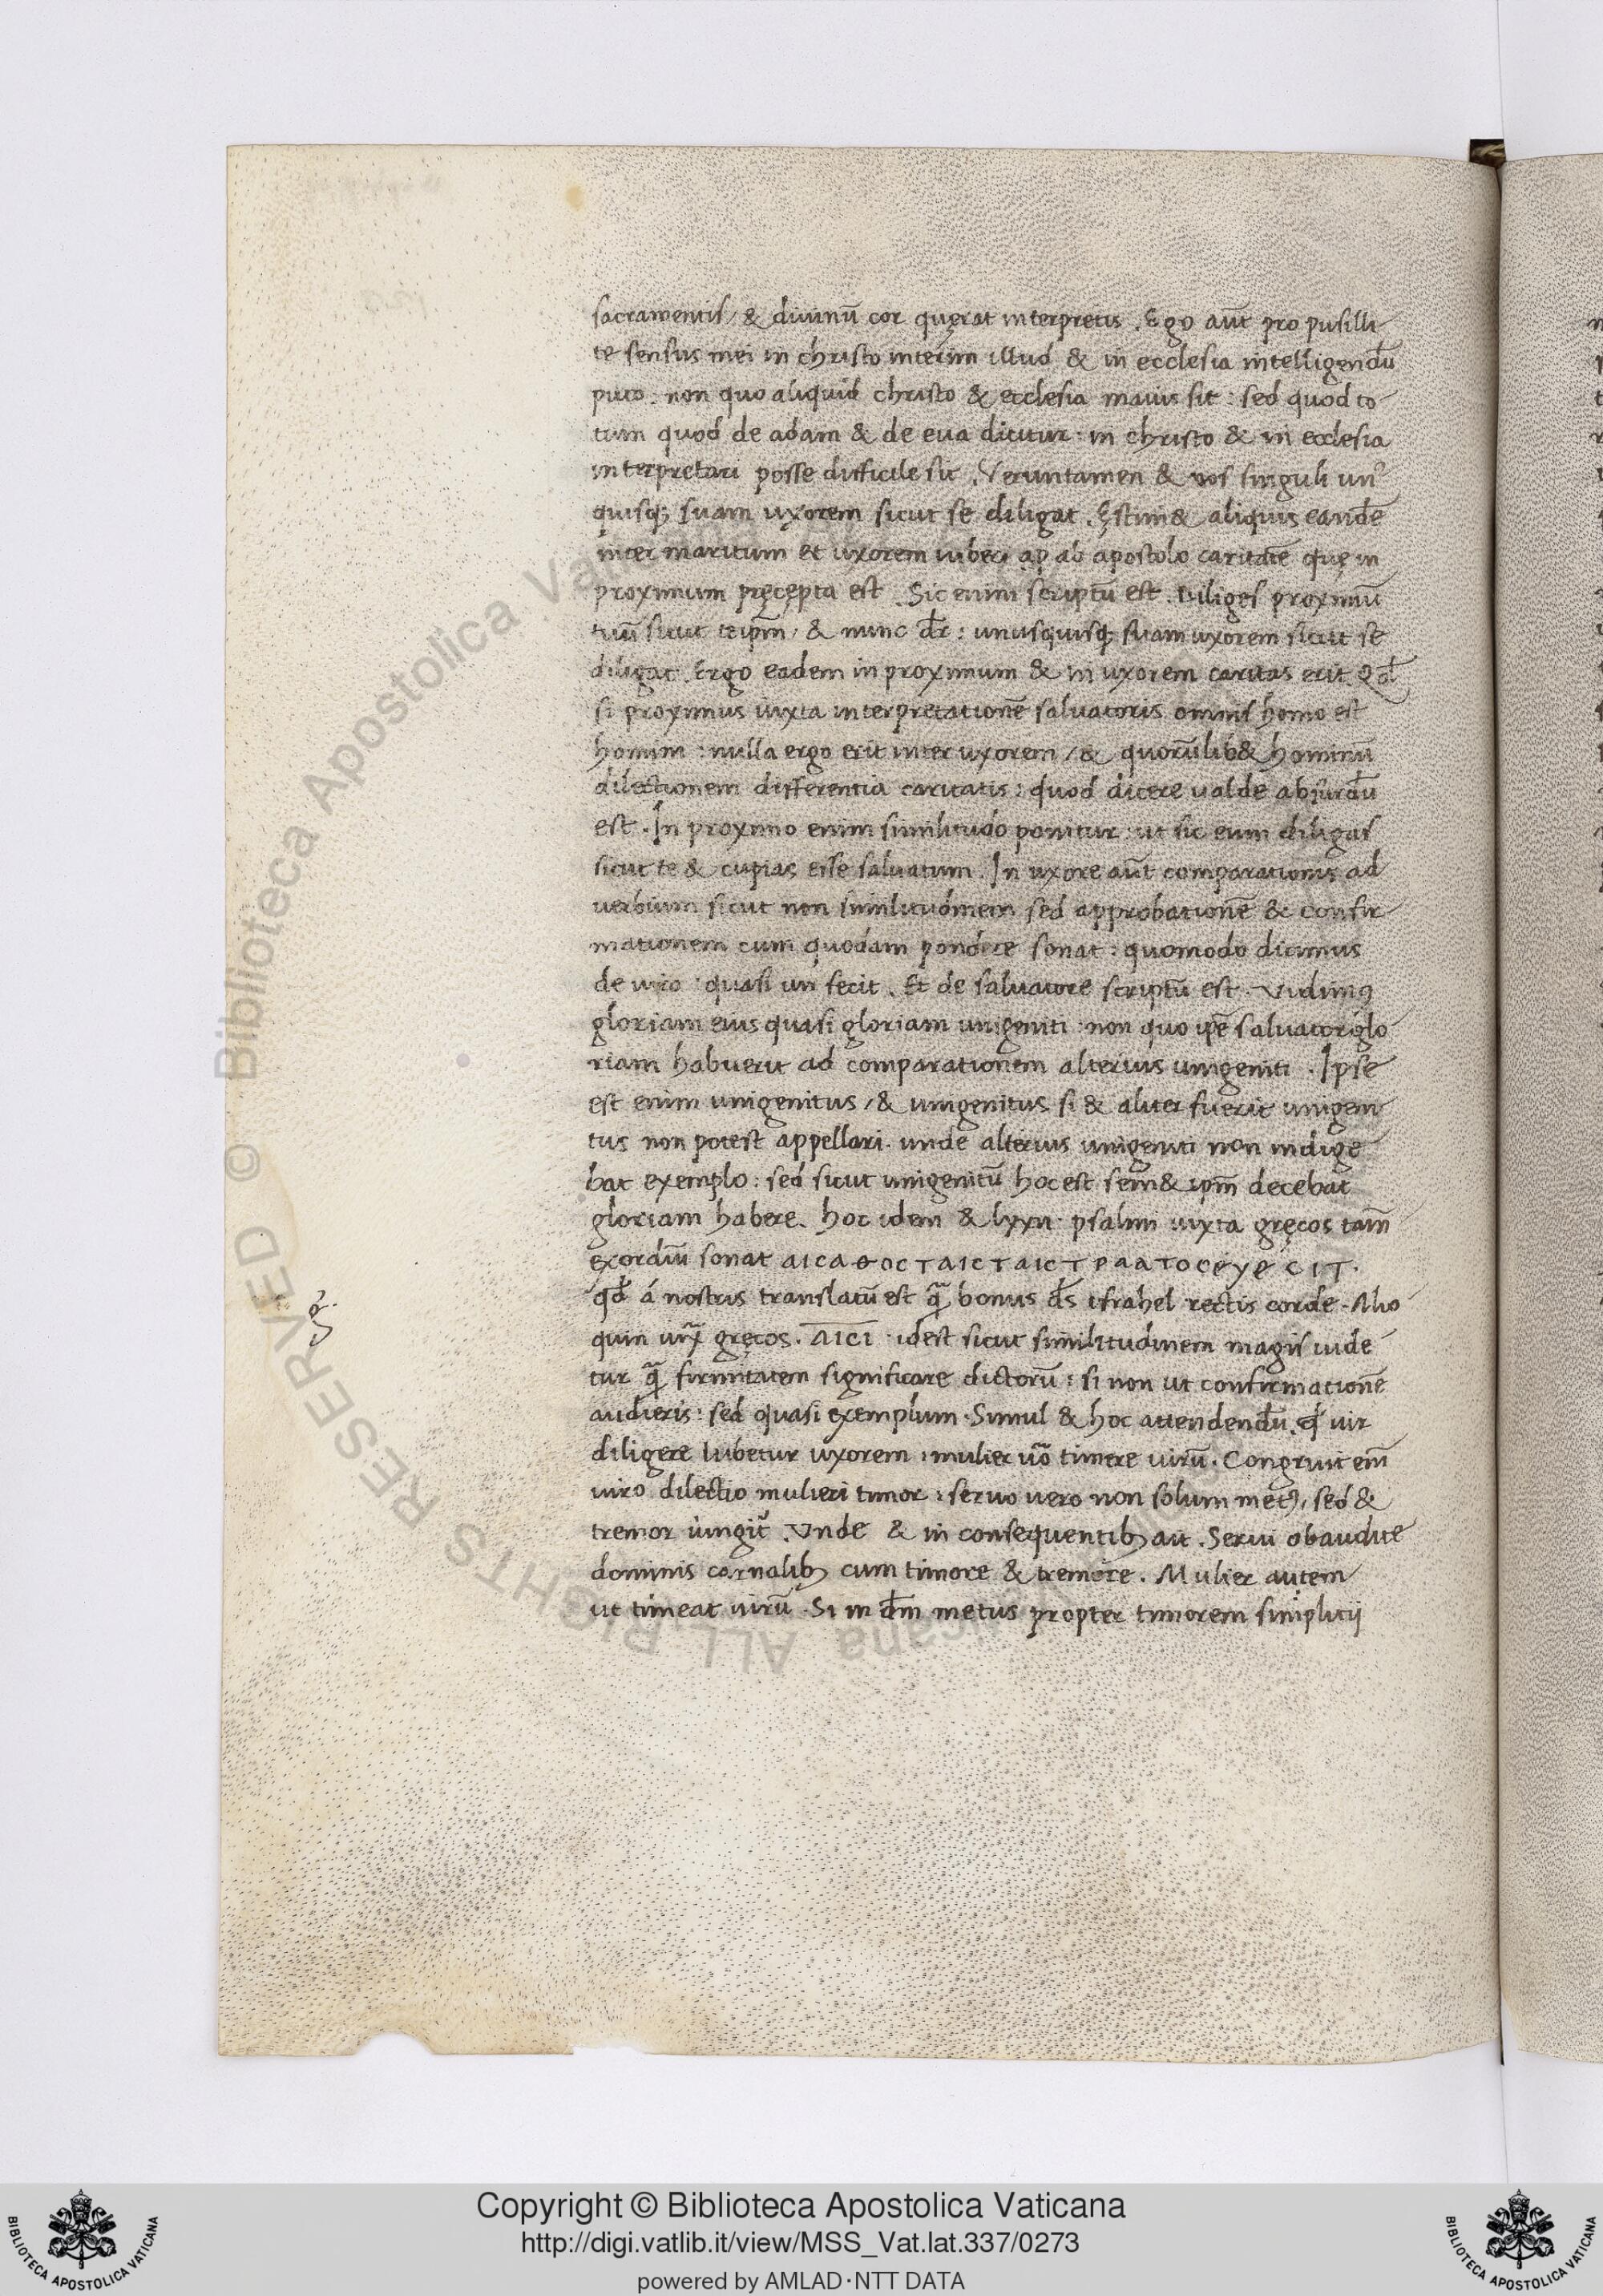 sacramentis / & diuinū cor quęrat interpretis . Ego aūt pro pusilli
te sensus mei in christo interim illud & in ecclesia intelligendū
puto : non quo aliquid christo & ecclesia maius sit : sed quod to
tum quod de adam & de eva dicitur : in christo & in ecclesia
interpretari posse difficile sit . Veruntamen & uos singuli un'
quisq; suam uxorem sicut se diligat . Ęstim& aliquis eandē
inter maritum et uxorem iuberi ap ab apostolo caritatē quę in
proximum pręcępta est . Sic enim scriptū est . Diliges proximū
tuū sicut teipm̄ / & nunc dr̄ : unusquisq; suam uxorem sicut se
diligat . Ergo eadem in proximum & in uxorem caritas erit . Qd̄
si proximus iuxta interpretationē saluatoris omnis homo est
homini : nulla ergo erit inter uxorem / & quorūlib& hominū
dilectionem differentia caritatis : quod dicere ualde absurdū
est . In proximo enim similitudo ponitur : ut sic eum diligas
sicut te & cupias esse saluatum . In uxore aūt comparationis ad
uerbium sicut non similitudinem sed approbationē & confir
mationem cum quodam pondere sonat : quomodo dicimus
de uiro : quasi uir fecit . Et de saluatore scriptū est . Vidimꝰ
gloriam eius quasi gloriam unigeniti : non quo ipē saluator glo
riam habuerit ad comparationem alterius unigeniti . Ipse
est enim unigenitus / & unigenitus si & aliter fuerit unigeni
tus non potest appellari . unde alterius unigeniti non indige
bat exemplo : sed sicut unigenitū hoc est sem& ipm̄ decebat
gloriam habere . hoc idem & lxxii · psalmi iuxta gręcos tam̄
exordiū sonat ΑΙCΑΘΟCΤΑΙCΤΑΙCΤΡΑΑΤΟCΕΥΕCΙΤ .
qd̄ á nostris translatū est quā bonus ds̄ israhel rectis corde . Alio
quin iuxͣ gręcos . ΑΙCΙ · idest sicut similitudinem magis uide
tur quā firmitatem significare dictorū : si non ut confirmationē
audieris : sed quasi exemplum . Simul & hoc attendendū . qd̄ uir
diligere iubetur uxorem : mulier uō timere uirū . Congruit em̄
uiro dilectio mulieri timor : seruo uero non solum metꝰ , sed &
tremor iungit̄ . Vnde & in consequentib; ait . Serui obaudite
dominis carnalib; cum timore & tremore . Mulier autem
ut timeat uirū . Si in dm̄ metus propter timorem simplicij
Copyright © Biblioteca Apostolica Vaticana
http://digi.vatlib.it/view/MSS_Vat.lat.337/0273
powered by AMLAD·NTT DATA
BIBLIOTECA APOSTOLICA VATICANA
BIBLIOTECA APOSTOLICA VATICANA